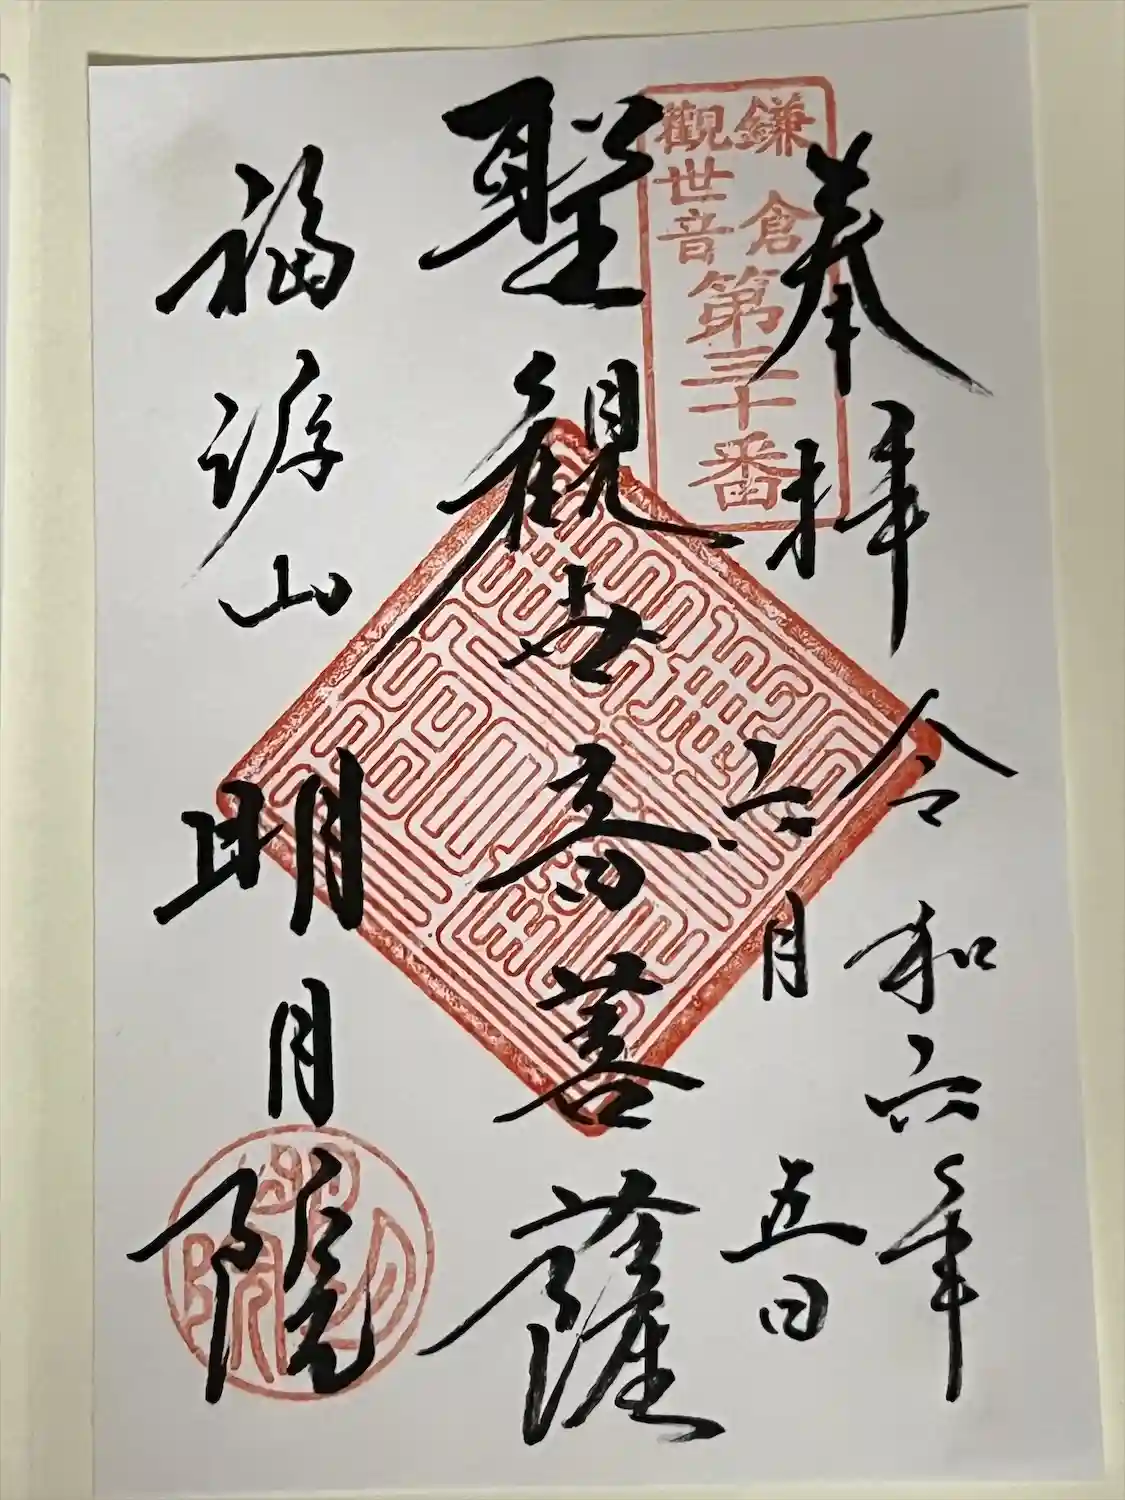 奉拝
令和六年
六月五日
鎌倉
觀世音
第三十番
聖観世音菩薩
福源山
明月院